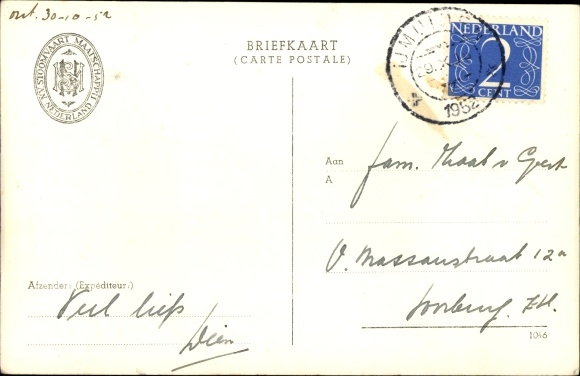 ont. 30-10-52
N.V. STOOMVAART MAATSCHAPPIJ NEDERLAND
BRIEFKAART
(CARTE POSTALE)
IJMUIDEN
1952
NEDERLAND
2
CENT
Aan
A
Fam. Kraal v Gert
V. Nassaustraat 12a
Voorburg. Z.H.
Afzender: (Expéditeur:)
Veel liefs
Dien
1046